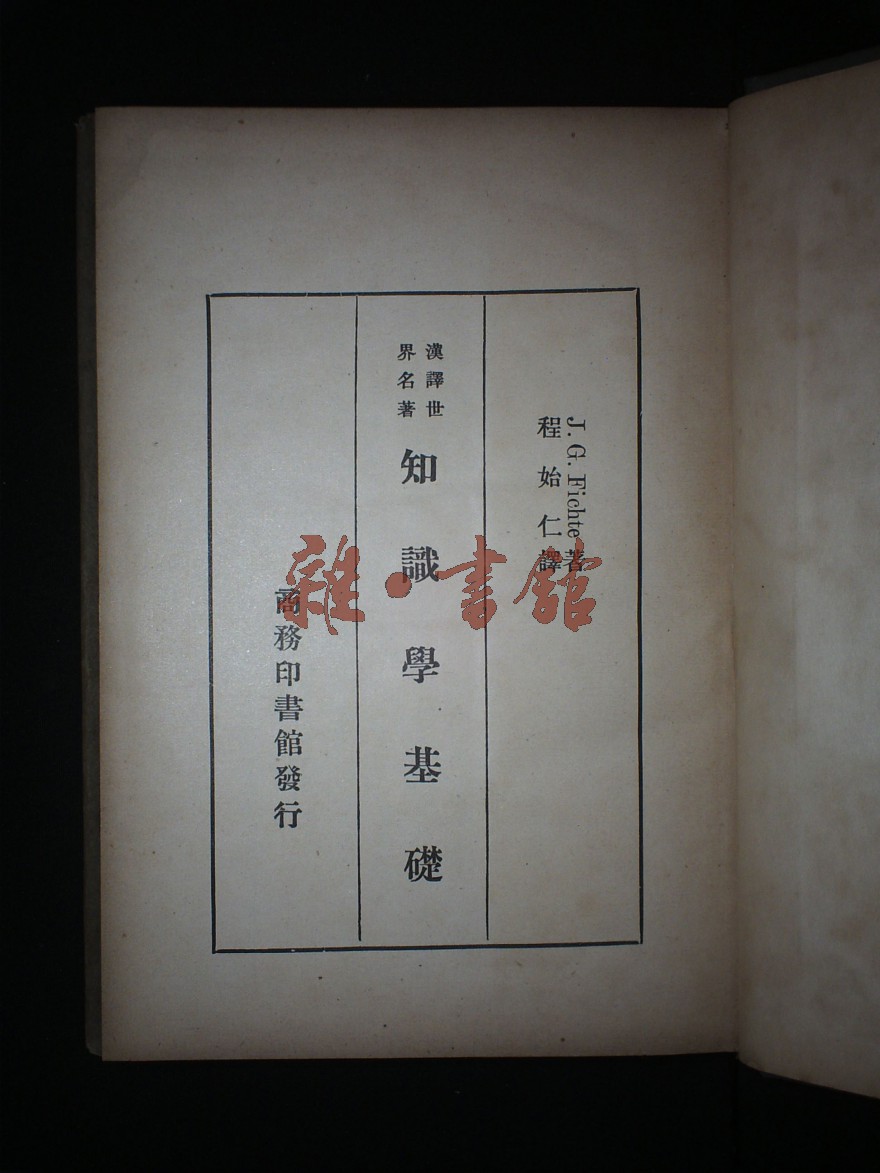 J. G. Fichte 著
程始仁譯
漢譯世
界名著
知識學基礎
商務印書館發行
雜·書館